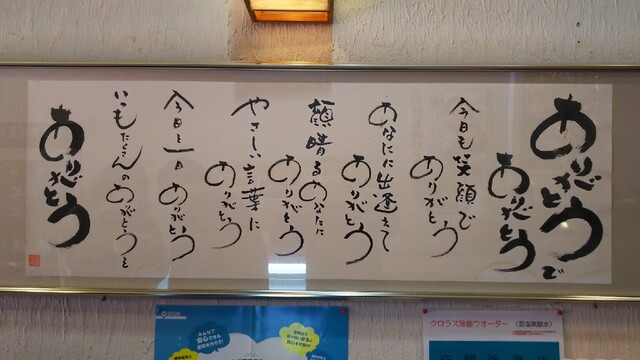 ありがとうで
ありがとう
今日も笑顔で
ありがとう
あなたに出逢えて
ありがとう
顔晴るあなたに
ありがとう
やさしい言葉に
ありがとう
今日と一日
ありがとう
いつもたくさんのありがとうと
ありがとう
みんなで
安心できる
クロラス除菌ウオーター